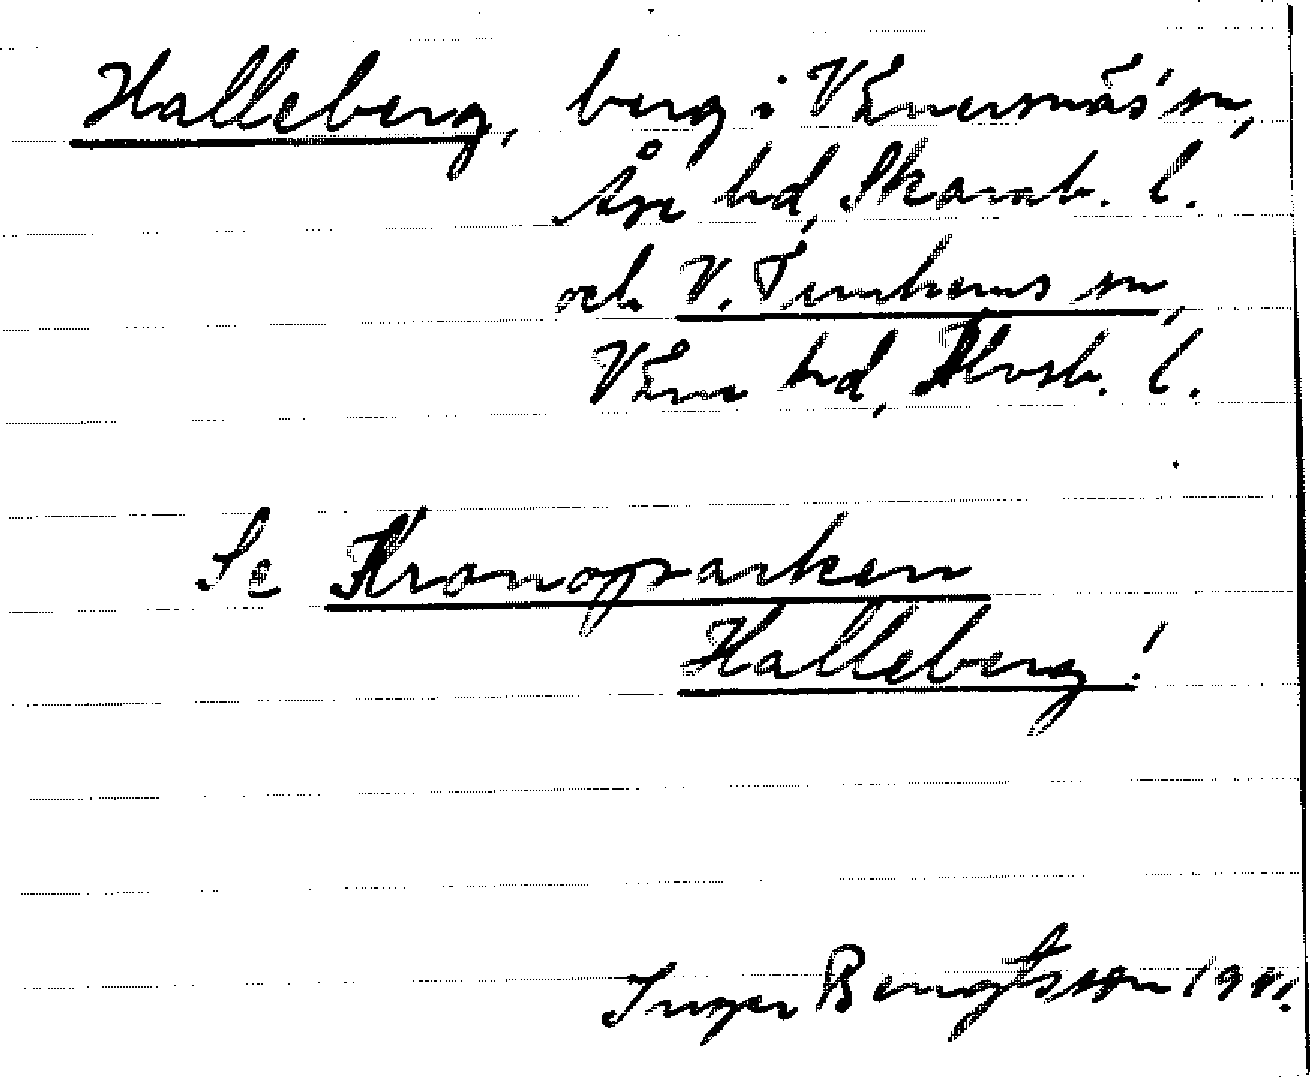 Halleberg, berg i Vänersnäs sn,
Åse hd, Skarab. l.
och V. Tunhems sn,
Väne hd, Älvsb. l.
Se Kronoparken
Halleberg!
Inger Bengtsson